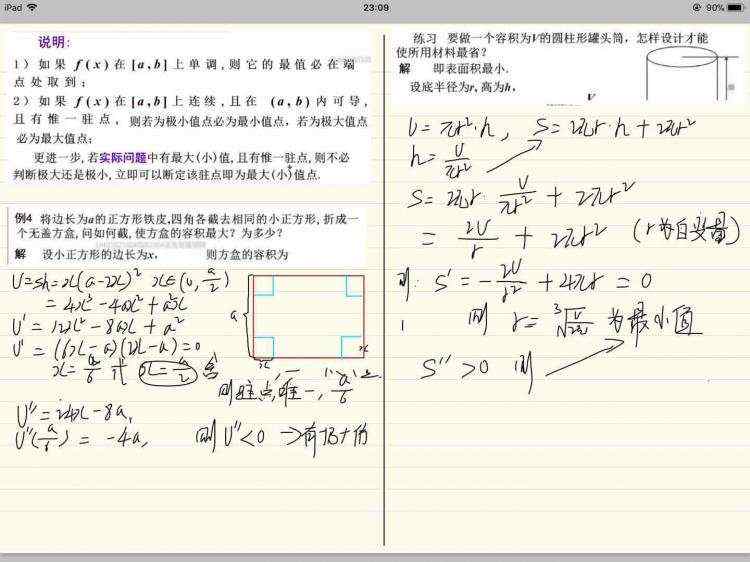 iPad
23:09
90%
说明:
1) 如果 f(x) 在 [a,b] 上单调,则它的最值必在端
点处取到;
2) 如果 f(x) 在 [a,b] 上连续,且在 (a,b) 内可导,
且有惟一驻点,则若为极小值点必为最小值点,若为极大值点
必为最大值点;
更进一步,若实际问题中有最大(小)值,且有惟一驻点,则不必
判断极大还是极小,立即可以断定该驻点即为最大(小)值点.
例4 将边长为a的正方形铁皮,四角各截去相同的小正方形,折成一
个无盖方盒,问如何截,使方盒的容积最大?为多少?
解 设小正方形的边长为x, 则方盒的容积为
V=sh=x(a-2x)² x∈(0, a/2)
=4x³-4ax²+a²x
V'=12x²-8ax+a²
V'=(6x-a)(2x-a)=0
x=a/6 或 x=a/2 舍
a
x
x
则驻点唯一, a/6
V''=24x-8a,
V''(a/6)=-4a, 则V''<0 →有极大值
练习 要做一个容积为V的圆柱形罐头筒,怎样设计才能
使所用材料最省?
解 即表面积最小.
设底半径为r,高为h,
V
V=πr²·h, S=2πr·h+2πr²
h=V/πr²
S=2πr·V/πr²+2πr²
=2V/r+2πr² (r为自变量)
则: S'=-2V/r²+4πr=0
则 r=³√(V/2π) 为最小值
S''>0 则